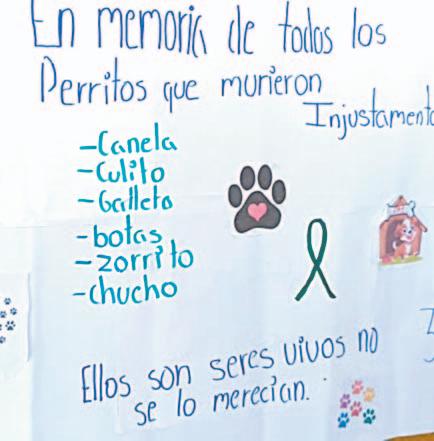 En memoria de todos los
Perritos que murieron
Injustamente
-Canela
-Culito
-Galleta
-botas
-zorrito
-chucho
Ellos son seres vivos no
se lo merecian.